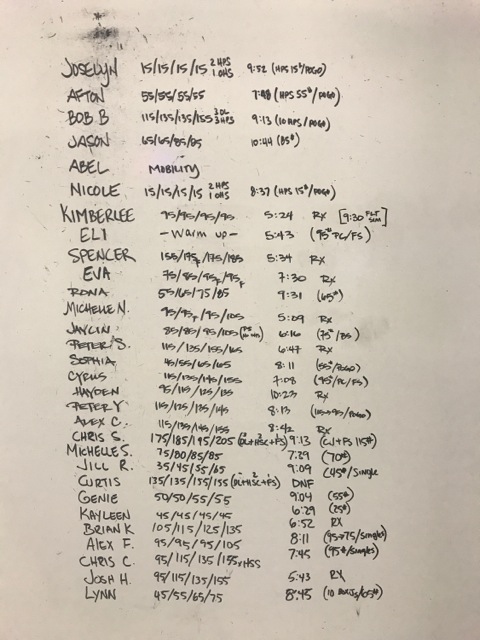 JOSELYN 15/15/15/15 2 HPS 1 OHS 9:52 (HPS 15#/POGO)
AFTON 55/55/55/55 7:48 (HPS 55#/POGO)
BOB B 115/135/135/155 3 DL 3 HPS 9:13 (10 HPS/POGO)
JASON 65/65/85/85 10:44 (85#)
ABEL MOBILITY
NICOLE 15/15/15/15 2 HPS 1 OHS 8:37 (HPS 15#/POGO)
KIMBERLEE 95/95/95/95 5:24 RX [9:30
ELI -Warm up- 5:43 (95# PC/FS)
SPENCER 155/175/185 5:34 RX
EVA 75/85/95F/95F 7:30 RX
RONA 55/65/75/85 9:31 (65#)
MICHELLE N. 95/95F/95/105 5:09 RX
JAYLIN 85/85/95/105 6:16 (75#/BS)
PETER S. 115/135/155/165 6:47 RX
SOPHIA 45/55/65/65 8:11 (55#/POGO)
CYRUS 115/135/145/155 7:08 (95#/PC/FS)
HAYDEN 95/115/125/135 10:23 RX
PETER Y 115/125/135/145 8:13
ALEX C. 115/135/145/155 8:42 RX
CHRIS S. 175/185/195/205 (DL+HSC+FS) 9:13 (CJ+FS 115#)
MICHELLE S. 75/80/85/85 7:29 (70#)
JILL R. 35/45/55/65 9:09 (45#/Single
CURTIS 135/135/155/155 (DL+HSC+FS) DNF
GENIE 50/50/55/55 9:04 (55#)
KAYLEEN 45/45/45/45 6:29 (25#)
BRIAN K 105/115/125/135 6:52 RX
ALEX F. 95/95/95/105 8:11 (95→75/Singles)
CHRIS C. 95/115/135/155 7:45 (95#/Singles)
JOSH H. 95/115/135/155 5:43 RX
LYNN 45/55/65/75 8:45 (10 BOX JS/65#)